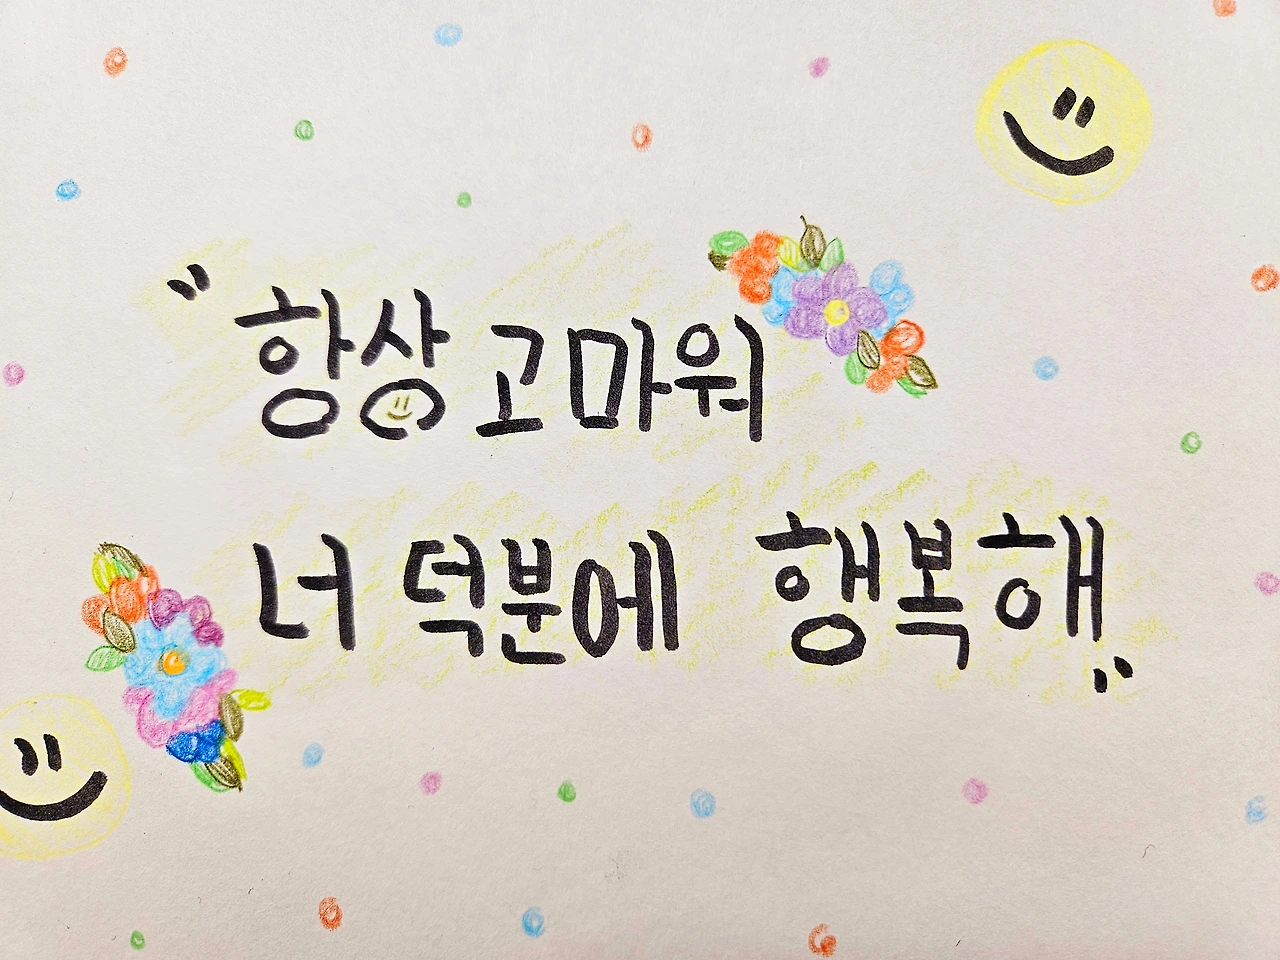 "항상 고마워
너 덕분에 행복해"